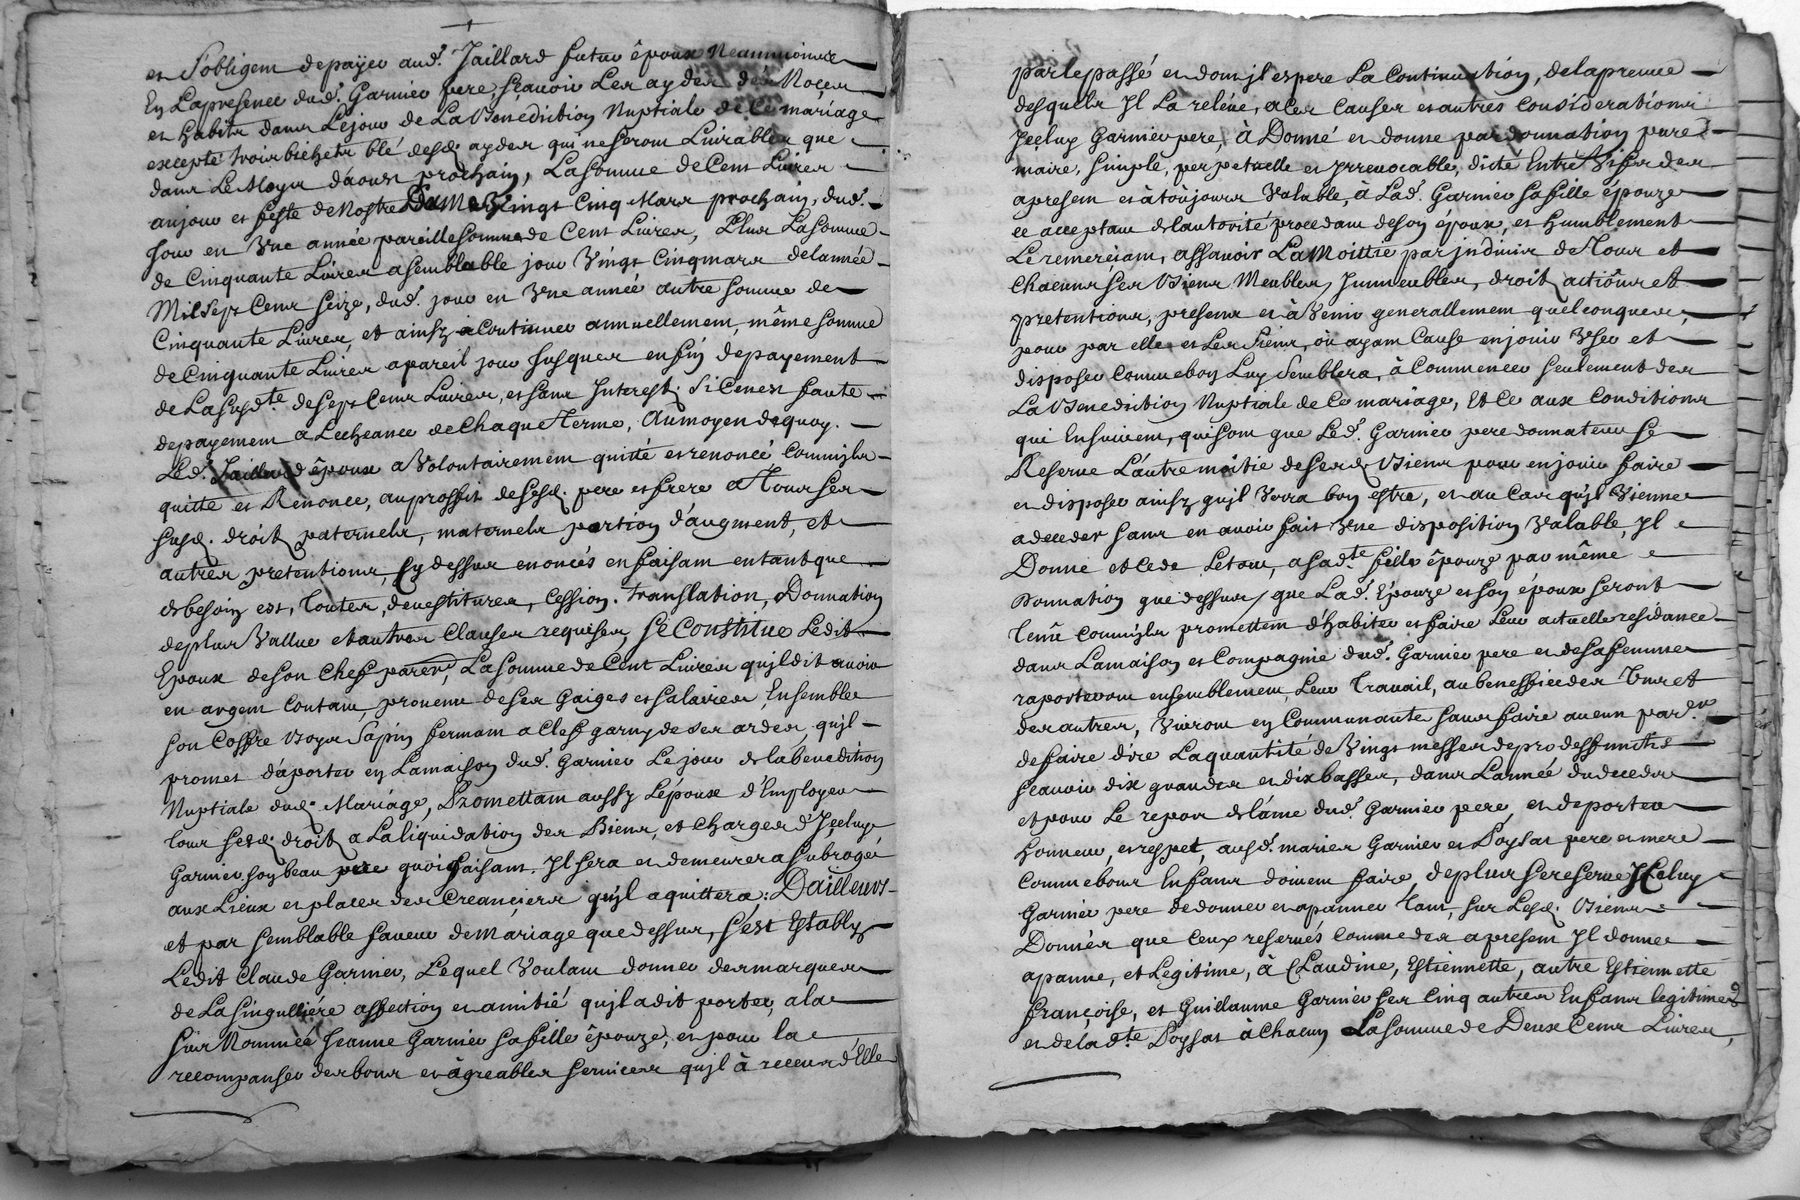 et S'obligent de payer aud. Jaillard futur époux Neammoins
En La presence dud. Garnier pere, sçavoir Les aydes des Noces
et habits dans Le jour de La Benediction Nuptiale de Ce mariage
excepté trois bichets blé desd. aydes qui ne seront Livrables que
dans Le Moys daoust prochain, La somme de Cent Livres
au jour et feste de Nostre Dame Vingt Cinq Mars prochain, dud.
Jour en Vne année pareille somme de Cent Livres, Plus La somme
de Cinquante Livres a semblable jour Vingt Cinq mars de lannée
Mil Sept Cens Seize, dud. jour en Vne année autre somme de
Cinquante Livres, et ainsy a Continuer annuellement, même somme
de Cinquante Livres a pareil jour jusques en fin de payement
de La susd.te de sept Cens Livres, et sans Interest, Si Ce n'est faute
de payement a Lecheance de Chaque Terme, Au moyen de quoy.
Led. Jaillard époux a Volontairement quitté et renoncé Comm'jl
quitte et Renonce, au proffit de sesd. pere et frere a Tous ses
susd. droits paternels, maternels portion d'augment, et
autres pretentions, Cy dessus enoncés en faisant en tant que
de besoin est, Toutes, devestitures, Cession. translation, Donnation
de plus Vallue et autres Clauses requises Se Constitue Ledit
Epoux de son Chef pareil, La somme de Cent Livres qu'jl dit avoir
en argent Contant, provenu de ses Gaiges et salaires, Ensembles
son Coffre Boys Sapin fermant a Clef garny de ses ardes, qu'jl
promet d'aporter en La maison dud. Garnier Le jour de la benedition
Nuptiale dud. Mariage, Promettant aussy L'époux d'Employer
tous sesd. droits a La liquidation des Biens, et Charges d'Jceluy
Garnier son beau pere quoi faisant. Jl sera et demeurera subrogé
aux Lieux et places des Creanciers qu'jl aquittera: D'ailleurs
et par semblable faveur de Mariage que dessus, s'est Estably
Ledit Claude Garnier, Lequel Voulant donner des marques
de La singulliére affection et amitié qu'jl a dit porter, a la
sus Nommée Jeanne Garnier sa fille épouze, et pour la
recompanser des bons et agreables services qu'jl à receus d'Elle
par le passé et dont jl espere La Continuation, de la preuve
desquels Jl La reléve, a Ces Causes et autres Considerations
Jceluy Garnier pere, à Donné et donne par donnation pure
maire, simple, perpetuelle et Jrrevocable, dicte Entre Vifs des
apresent et à toûjours Valable, à Lad. Garnier sa fille épouze
ce acceptant de lautorité procedant de son époux, et humblement
Le remerciant, assavoir La Moittié par jndivis de Tous et
Chacuns ses Biens Meubles, Jmmeubles, droits actions et
pretentions, presens et à Venir generallement quelconques,
pour par elle et Les Siens, où ayant Cause en jouir Vser et
disposer Comme bon Luy Semblera, à Commencer seulement des
La Benediction Nuptiale de Ce mariage, Et Ce aux Conditions
qui Ensuivent, qui sont que Led. Garnier pere donnateur se
Reserve L'autre moitié de sesd. Biens pour en jouir faire
et disposer ainsy qu'jl Verra bon estre, et au Cas qu'jl Vienne
a deceder sans en avoir fait Vne disposition Valable, Jl
Donne et Cede Le tout, a sad.te fille épouze par même
Donnation que dessus, que Lad. Epouze et son époux seront
Tenû Comm'jls promettent d'habiter et faire Leur actuelle residance
dans La maison et Compagnie dud. Garnier pere et de sa femme
raporteront ensemblement Leur Travail, au benefficedes Vns et
des autres, Vivront en Communauté sans faire aucun par.er
de faire dire La quantité de Vingt messes de pro deffunctis
sçavoir dix grandes et dix basses, dans L'année du deceds
et pour Le repos de lâme dud. Garnier pere, et de porter
honneur, et respet, ausd. mariés Garnier et Poysat pere et mere
Comme bons Enfans doivent faire, de plus se reserve Jceluy
Garnier pere de donner et apanner tant, sur Lesd. Biens
Donnés que Ceux reservés Comme des apresent Jl donne
apanne, et Legitime, à Claudine, Estiennette, autre Estiennette
françoise, et Guillaume Garnier ses Cinq autres Enfans legitimes
et de lad.te Poysat à Chacun La somme de Deux Cens Livres,